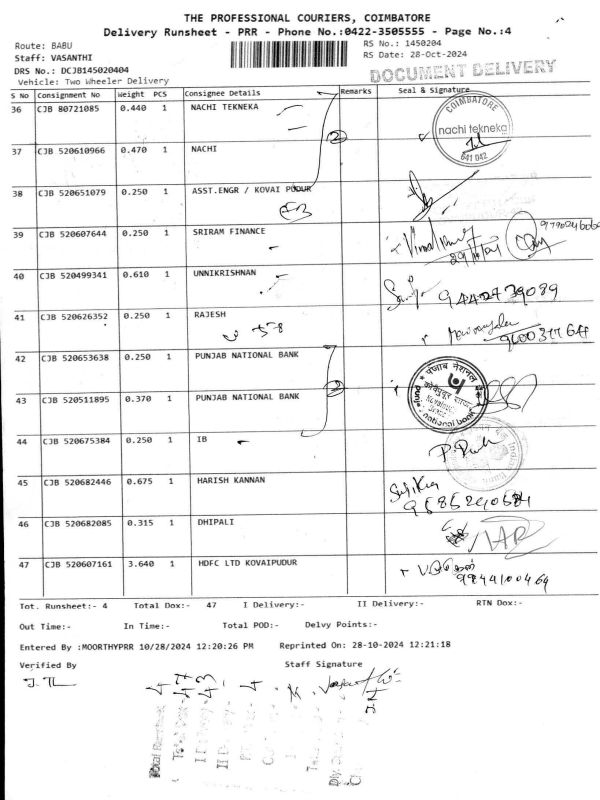 THE PROFESSIONAL COURIERS, COIMBATORE
Delivery Runsheet - PRR - Phone No.:0422-3505555 - Page No.:4
Route: BABU
Staff: VASANTHI
DRS No.: DCJB145020404
Vehicle: Two Wheeler Delivery
RS No.: 1450204
RS Date: 28-Oct-2024
DOCUMENT DELIVERY
S No Consignment No Weight PCS Consignee Details Remarks Seal & Signature
36 CJB 80721085 0.440 1 NACHI TEKNEKA
COIMBATORE
nachi tekneka
641 042
37 CJB 520610966 0.470 1 NACHI
2
38 CJB 520651079 0.250 1 ASST.ENGR / KOVAI PUDUR
EB
39 CJB 520607644 0.250 1 SRIRAM FINANCE
40 CJB 520499341 0.610 1 UNNIKRISHNAN
41 CJB 520626352 0.250 1 RAJESH
42 CJB 520653638 0.250 1 PUNJAB NATIONAL BANK
पंजाब नैशनल
punjab national bank
43 CJB 520511895 0.370 1 PUNJAB NATIONAL BANK
2
44 CJB 520675384 0.250 1 IB
45 CJB 520682446 0.675 1 HARISH KANNAN
46 CJB 520682085 0.315 1 DHIPALI
47 CJB 520607161 3.640 1 HDFC LTD KOVAIPUDUR
9944100469
Tot. Runsheet:- 4 Total Dox:- 47 I Delivery:- II Delivery:- RTN Dox:-
Out Time:- In Time:- Total POD:- Delvy Points:-
Entered By :MOORTHYPRR 10/28/2024 12:20:26 PM Reprinted On: 28-10-2024 12:21:18
Verified By Staff Signature